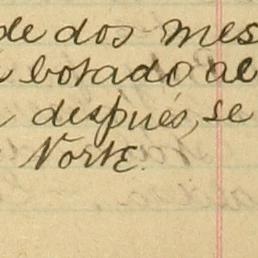 de dos mes
botado al
después, se
Norte.